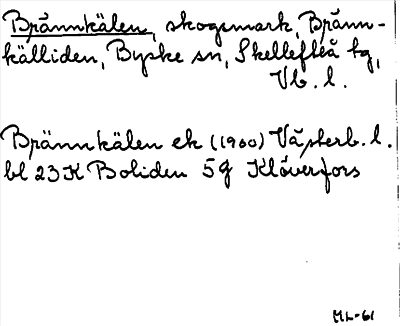 Brännkälen, skogsmark, Bränn-
källiden, Byske sn, Skellefteå tg,
Vb. l.
Brännkälen ek (1960) Västerb. l.
bl 23 K Boliden 5 g Klöverfors
ML-61